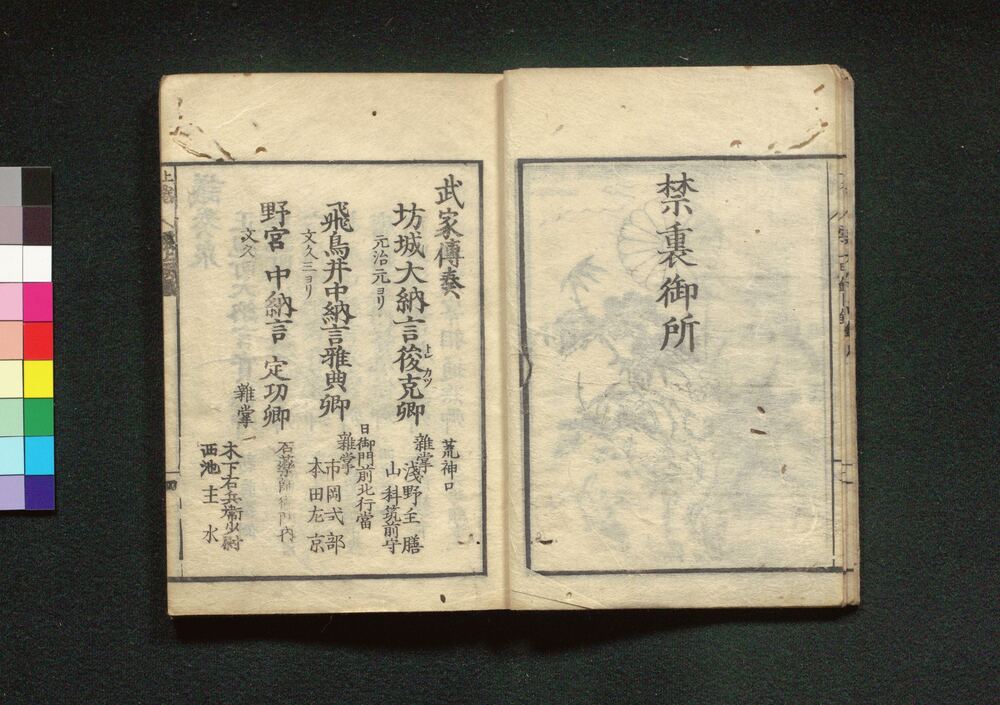 禁裏御所
武家傳奏
坊城大納言俊克卿
トシカツ
元治元ヨリ
荒神口
雜掌
浅野主膳
山科筑前守
飛鳥井中納言雅典卿
文久三ヨリ
日御門前北行當
雜掌
市岡式部
本田左京
野宮中納言定功卿
文久
石薬師御門内
雜掌
木下右兵衛少尉
西池主水
上巻
四